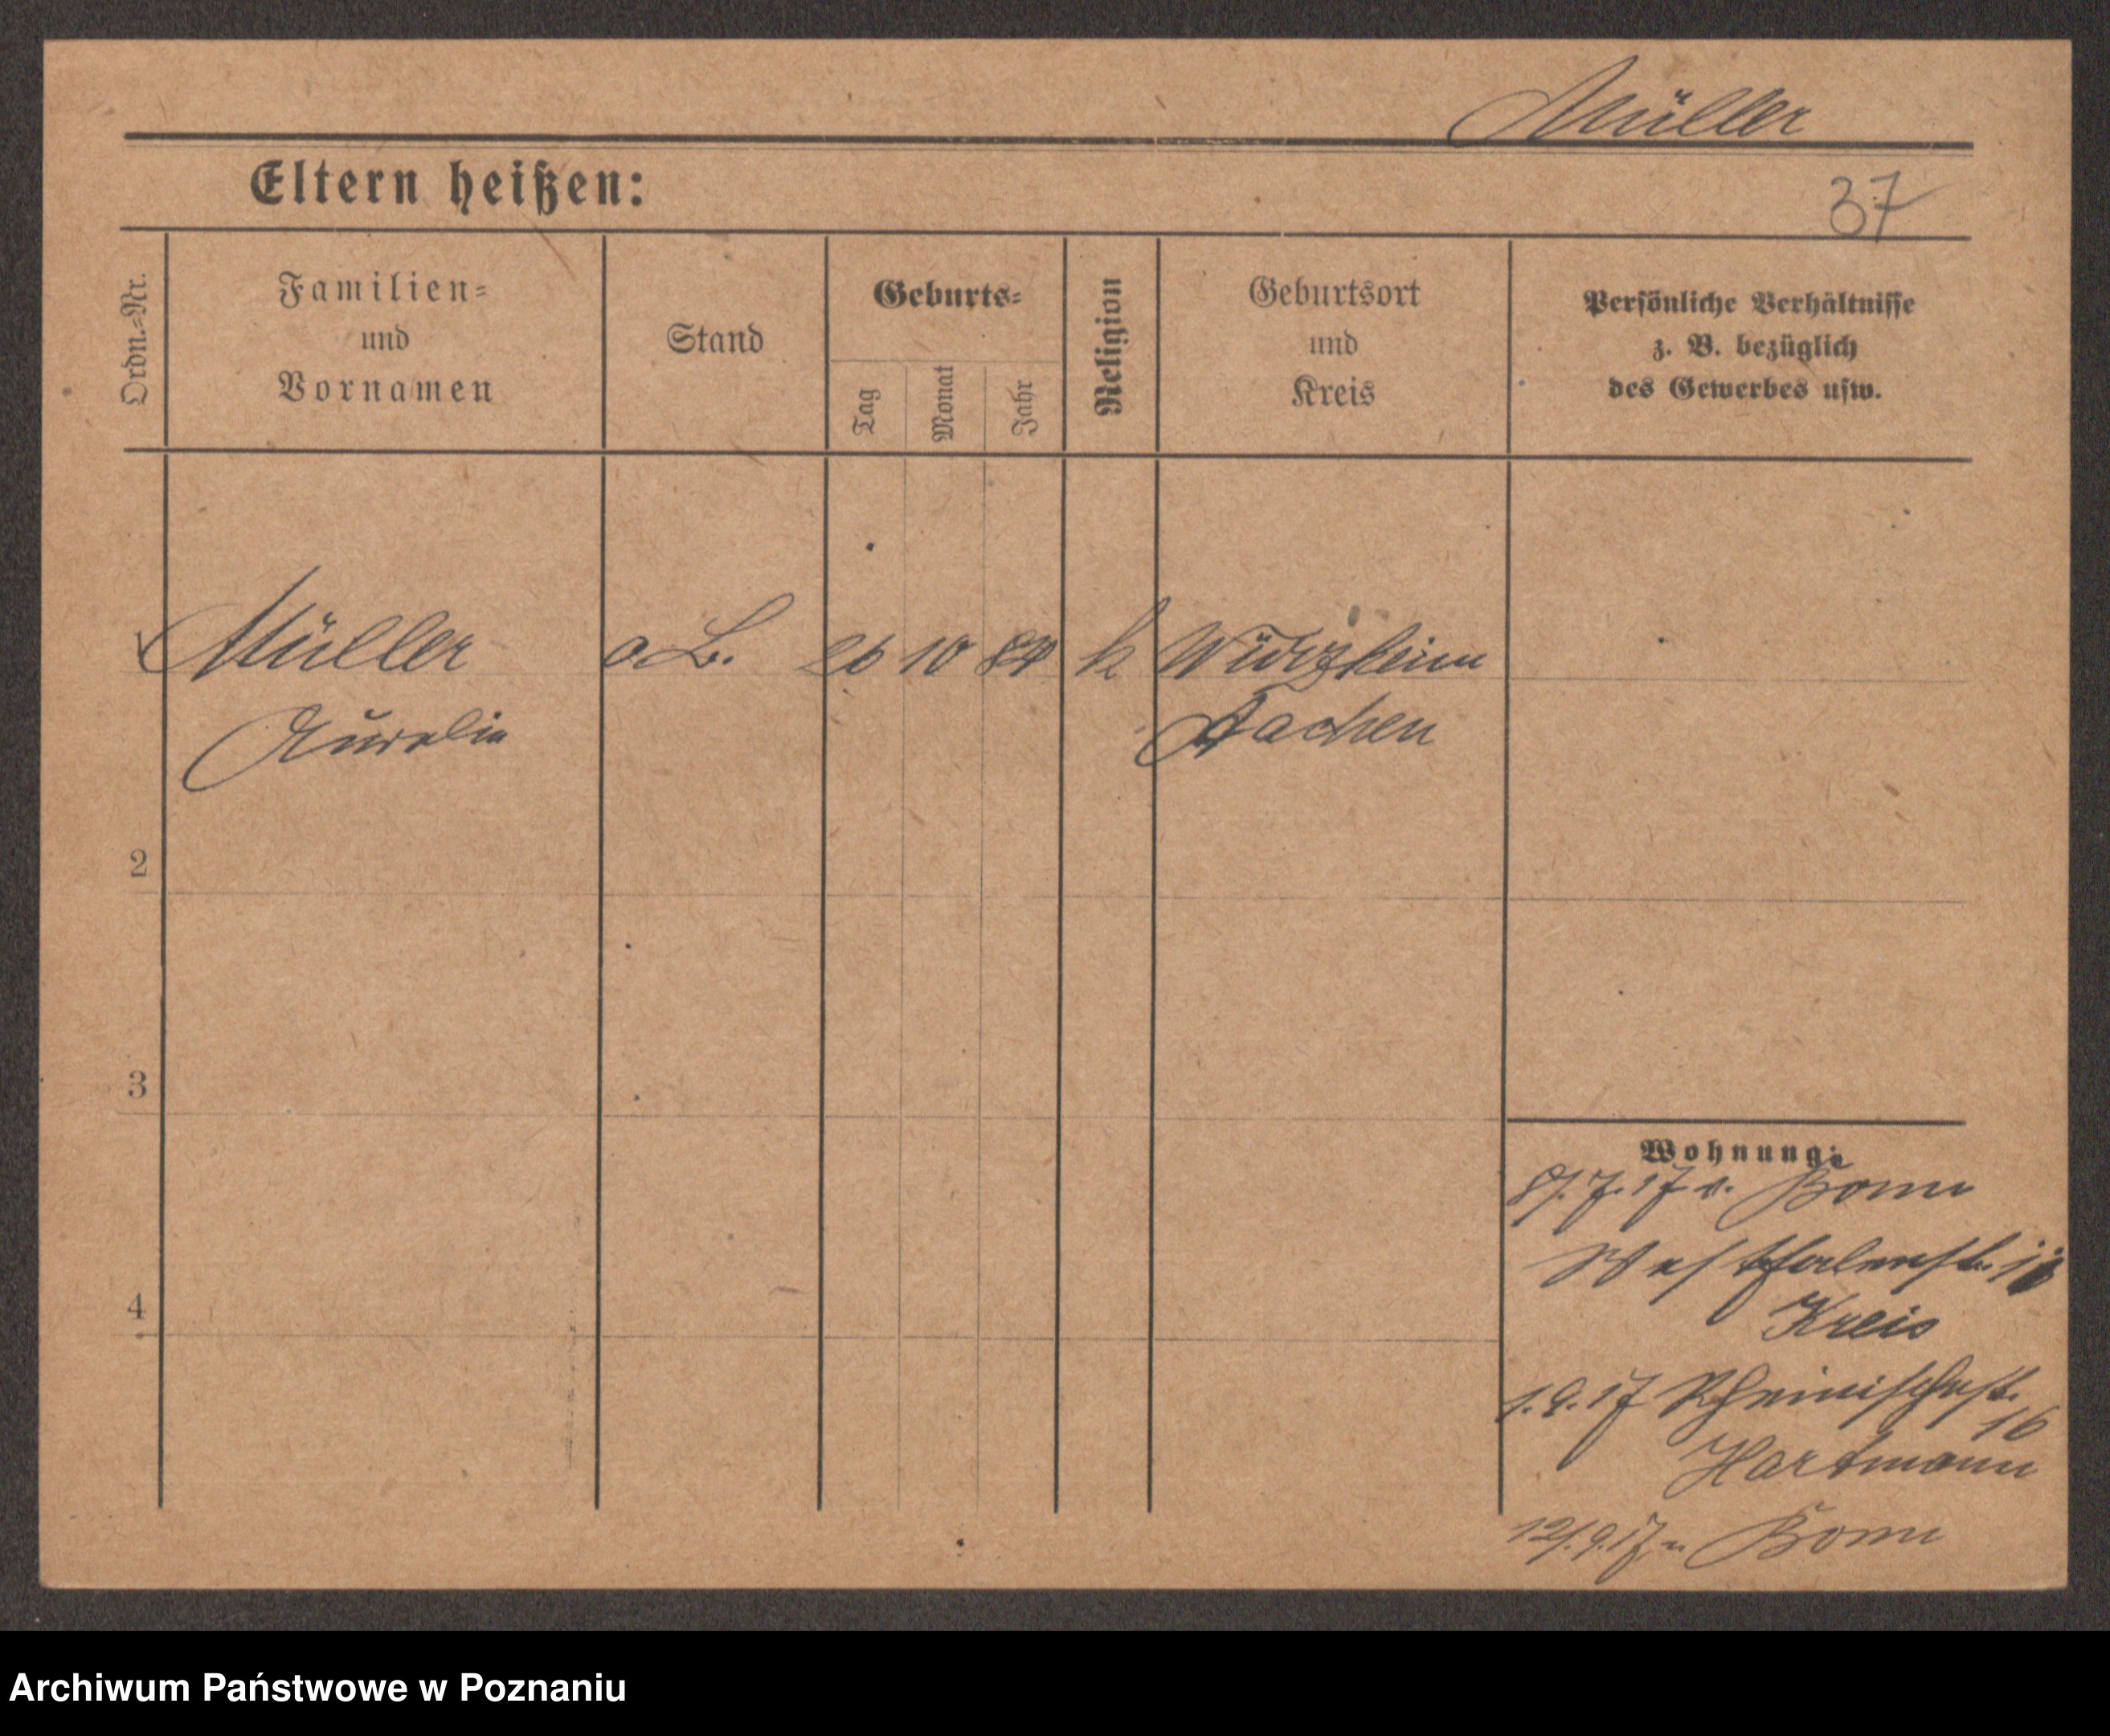 Müller
Eltern heißen:
37
Ordn.-Nr.
Familien-
und
Vornamen
Stand
Geburts-
Tag
Monat
Jahr
Religion
Geburtsort
und
Kreis
Persönliche Verhältnisse
z. B. bezüglich
des Gewerbes usw.
Müller o. B. 26 10 84 k Würzheim
Aurelie Aachen
2
3
4
Wohnung:
7.17 v. Bonn
Westfalenstr.
Kreis
1.9.17 Rheinischestr.
16
Hartmann
12/.9.17 n Bonn
Archiwum Państwowe w Poznaniu